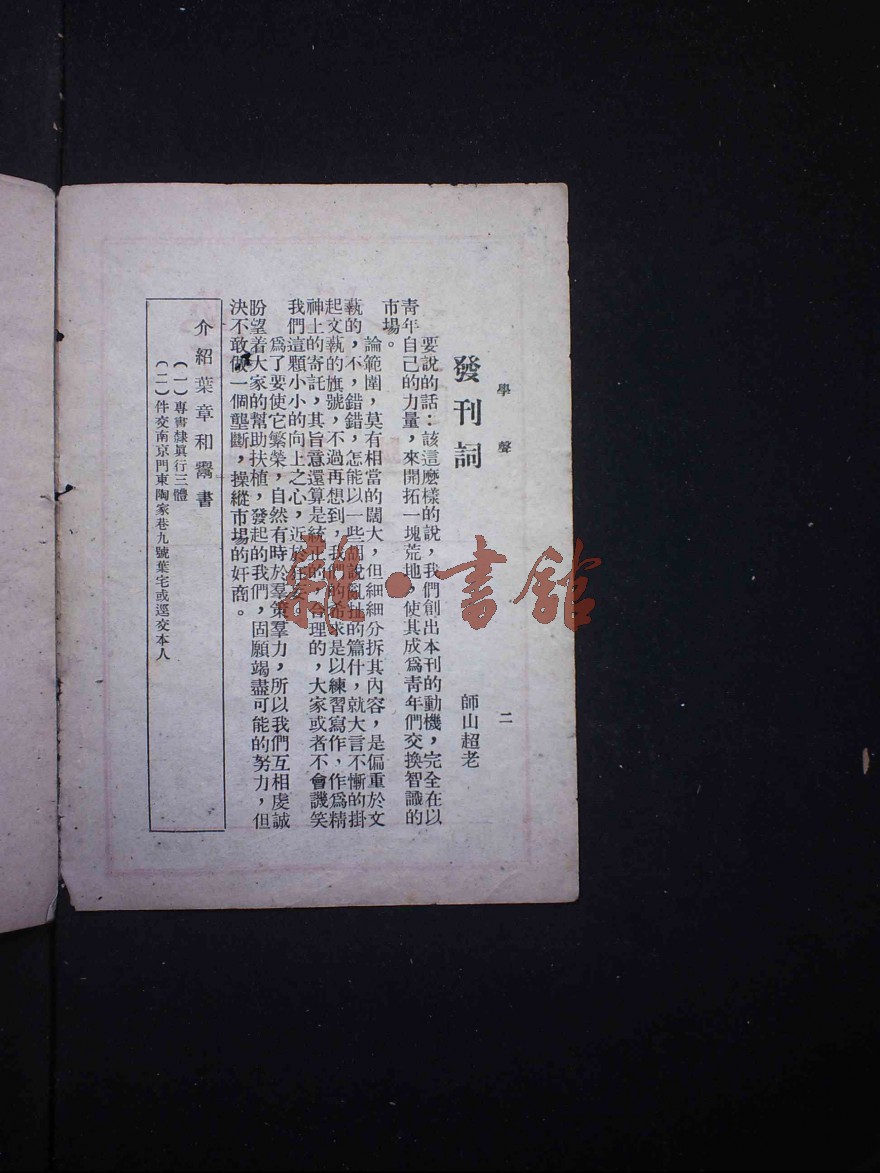 學聲 二
發刊詞 師山超老
要說的話：該這麼樣的說，我們創出本刊的動機，完全在以
青年自己的力量，來開拓一塊荒地，使其成爲青年們交換智識的
市場。
論範圍，莫有相當的闊大，但細細分拆其內容，是偏重於文
藝的，不，錯錯，怎能以一些胡說亂扯的篇什，就大言不慚的掛
起文藝的旗號，不過再想到，我們的希求是以練習寫作，作爲精
神上的寄託，其旨意還算是統正的，合理的，大家或者不會譏笑
我們這顆小小的向上之心，近於狂妄。
爲了要使它繁榮，自然有時於羣策羣力，所以我們互相虔誠
盼望着大家的幫助扶植，發起的我們，固願竭盡可能的努力，但
決不敢做一個壟斷，操縱市場的奸商。
介紹葉章和鬻書
（一）專書隸眞行三體
（二）件交南京門東陶家巷九號葉宅或逕交本人
雜·書館